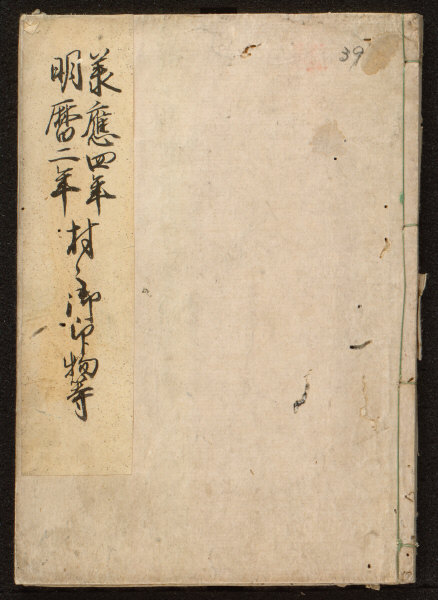 承應四年
明暦二年
村々御印物等
39